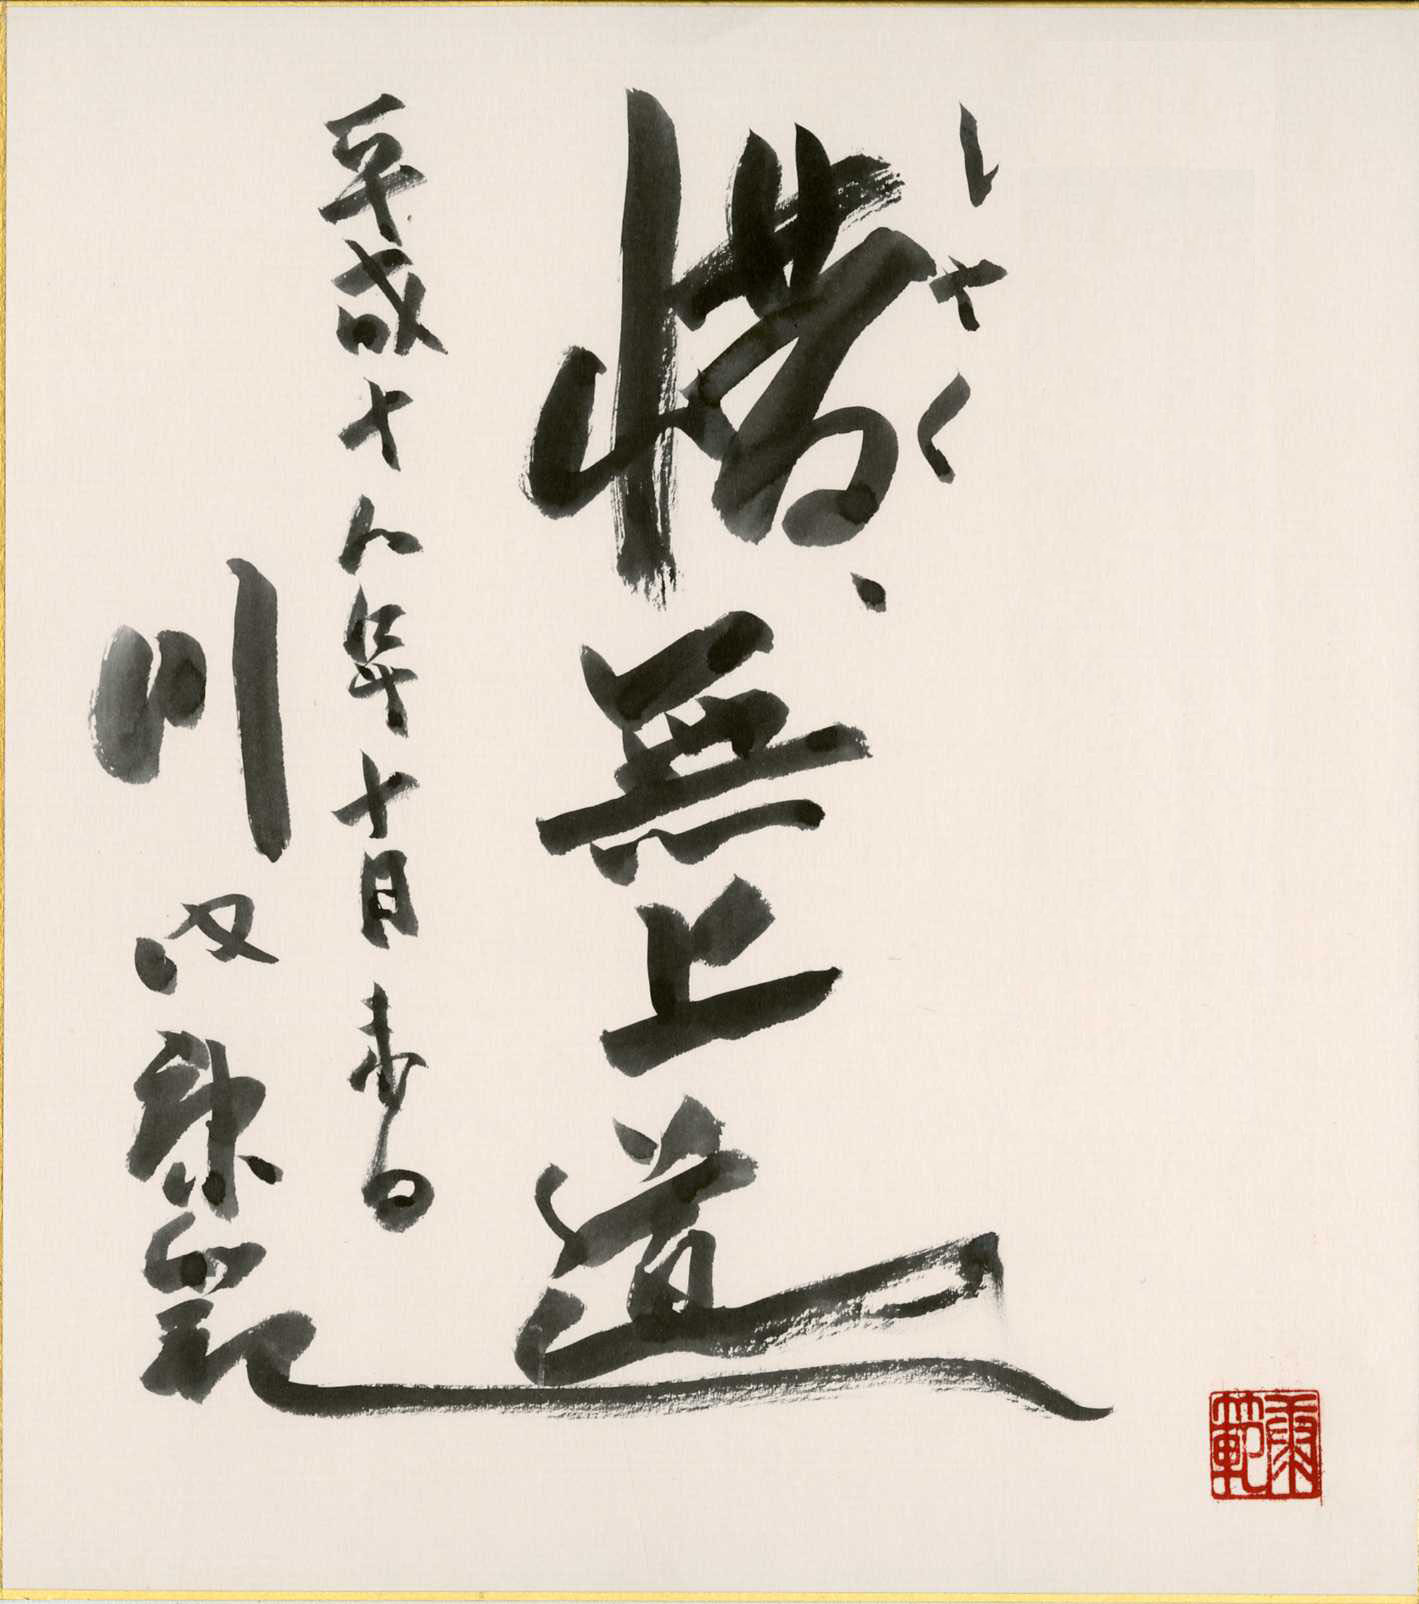 しゃく
惜、無上道
平成十八年十月吉日
川内康範
康範